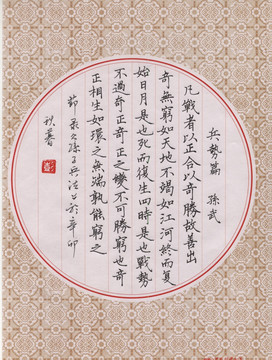 兵勢篇 孫武
凡戰者以正合以奇勝故善出
奇無窮如天地不竭如江河終而复
始日月是也死而復生四時是也戰勢
不過奇正奇正之變不可勝窮也奇
正相生如環之無端孰能窮之
節录《孫子兵法》於辛卯
秋暮